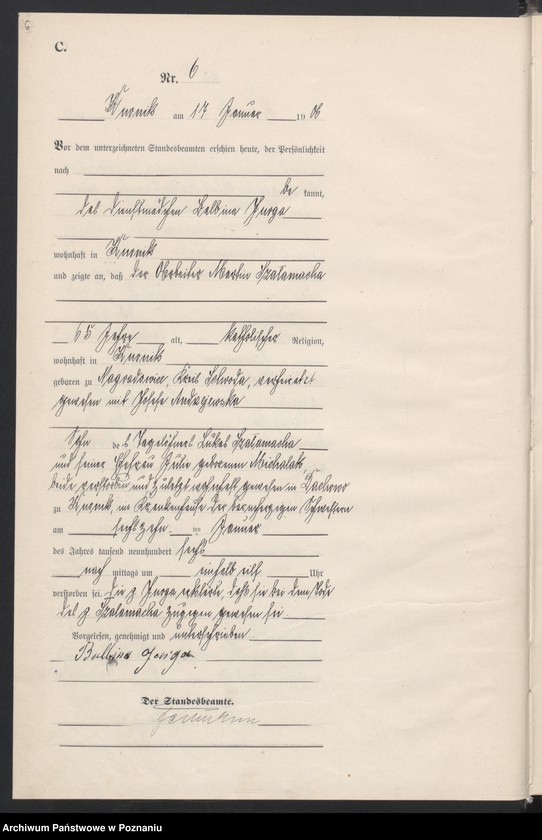 6
C.
Nr. 6
Kurnik am 17 Januar 1906
Vor dem unterzeichneten Standesbeamten erschien heute, der Persönlichkeit
nach
be kannt,
das Dienstmädchen Balbina
wohnhaft in Kurnik
und zeigte an, daß der Arbeiter Martin Szatamacha
65 Jahre alt, katholischer Religion,
wohnhaft in Kurnik
geboren zu Nagradowice, Kreis Schroda, verheiratet
gewesen mit Josefa Andrzejewska
Sohn des Tagelöhners Lukas Szatamacha
und seiner Ehefrau geborenen Michalak,
beide verstorben und zuletzt wohnhaft gewesen in
zu Kurnik, im Krankenhause der barmherzigen Schwestern
am sechszehn ten Januar
des Jahres tausend neunhundert sechs
nach mittags um einhalb elf Uhr
verstorben sei. Die erklärte, daß sie bei dem Tode
des Szatamacha zugegen gewesen sei
Vorgelesen, genehmigt und unterschrieben
Balbina
Der Standesbeamte.
Archiwum Państwowe w Poznaniu